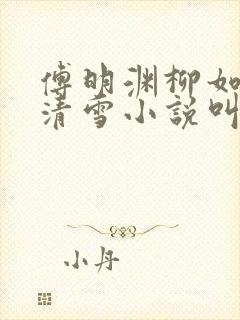 傅明渊柳如
清雪小説叫
小丹